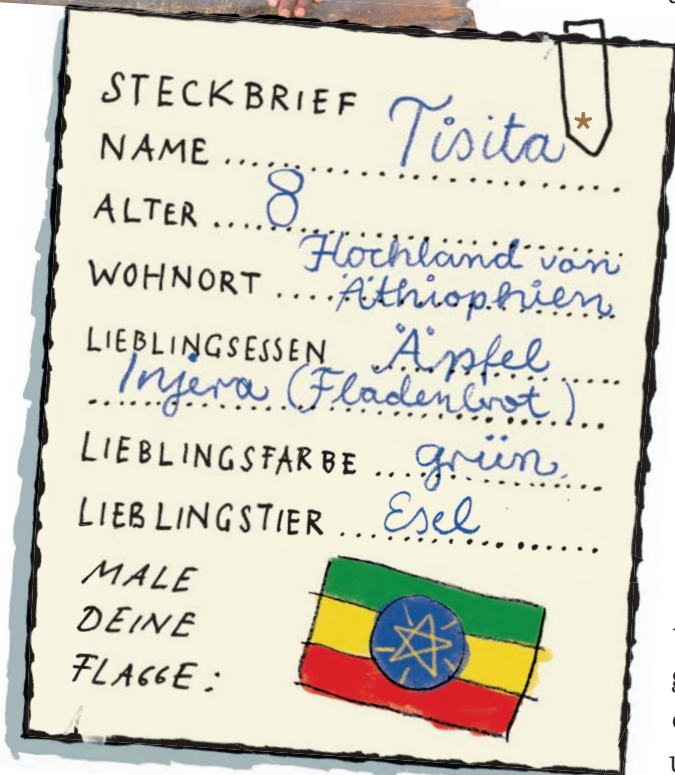 STECKBRIEF
NAME Tisita
ALTER 8
WOHNORT Hochland von
Äthiophien
LIEBLINGSESSEN Äpfel
Injera (Fladenbrot)
LIEBLINGSFARBE grün
LIEBLINGSTIER Esel
MALE
DEINE
FLAGGE: